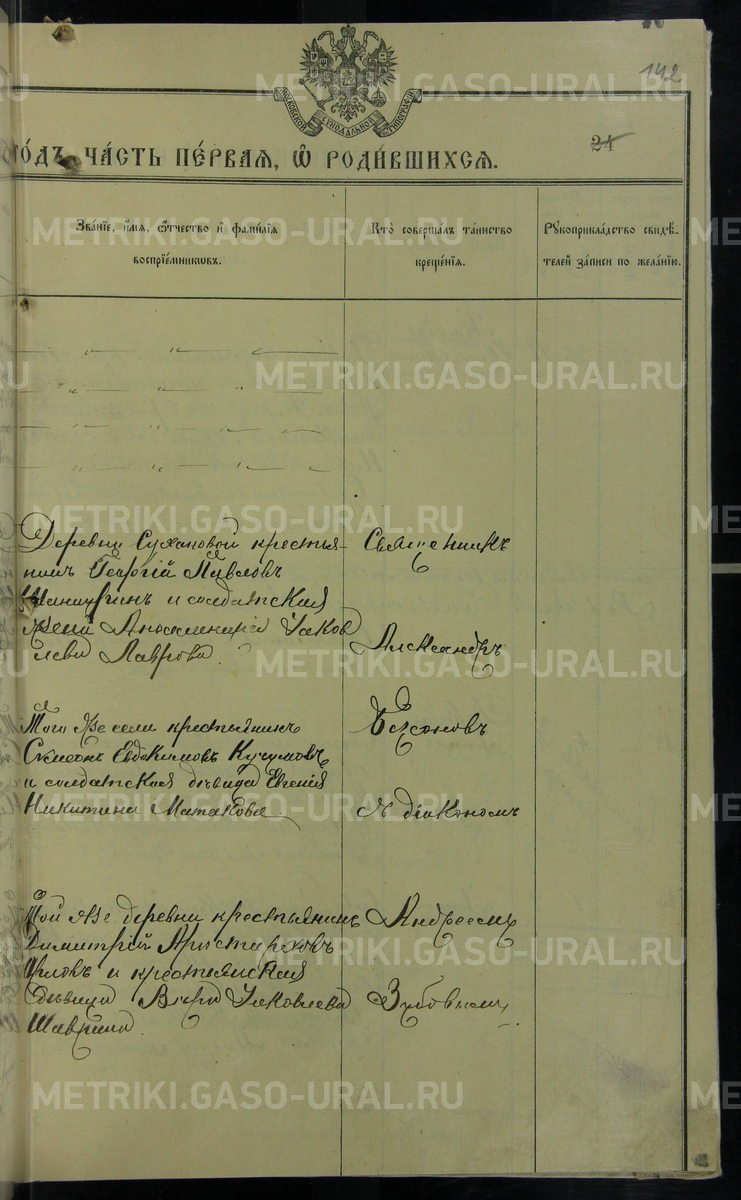 142
МОСКОВСКОЙ СѴНОДАЛЬНОЙ ТИПОГРАФІИ
24
ГО́ДЪ ЧА́СТЬ ПЕ́РВАЯ, Ѡ҆ РОДИ́ВШИХСЯ.
Зва́нїе, и҆́мя, ѻ҆́тчество и҆ фами́лїя
воспрїе́мникѡвъ.
Кто̀ соверша́лъ та́инство
креще́нїя.
Рꙋкоприкла́дство свидѣ́-
телей за́писи по жела́нїю.
Деревни Сухановой крестья-
нинъ Георгій Павловъ
и солдатская
жена Яков
лева Лаврова.
Священникъ
Александръ
Того же села крестьянинъ
Симеонъ Евдокимовъ Кучумовъ
и солдатская дѣвица Евгенія
Никитина Матакова
съ діакономъ
Той же деревни крестьянинъ
Димитрій Аристарховъ
Орловъ и крестьянская
дѣвица Вѣра Яковлева
Шаврина.
Андреемъ
Зубовымъ.
METRIKI.GASO-URAL.RU